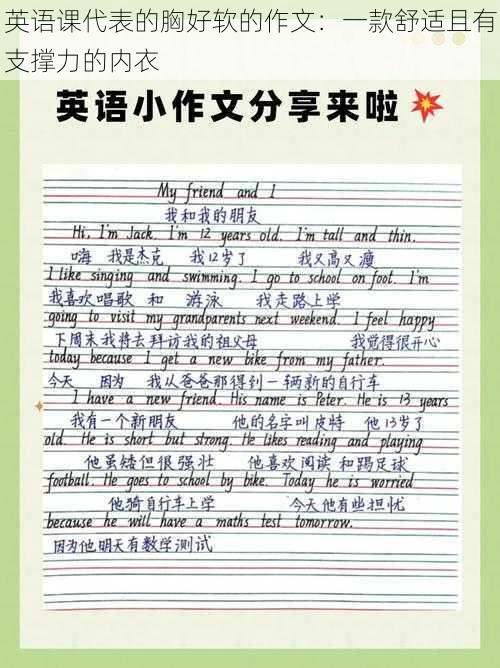 英语课代表的胸好软的作文：一款舒适且有
支撑力的内衣
英语小作文分享来啦
My friend and I
我和我的朋友
Hi, I'm Jack. I'm 12 years old. I'm tall and thin.
嗨 我是杰克 我12岁了 我又高又瘦
I like singing and swimming. I go to school on foot. I'm
我喜欢唱歌 和 游泳 我走路上学
going to visit my grandparents next weekend. I feel happy
下周末我将去拜访我的祖父母 我觉得很开心
today because I get a new bike from my father.
今天 因为 我从爸爸那得到一辆新的自行车
I have a new friend. His name is Peter. He is 13 years
我有一个新朋友 他的名字叫皮特 他13岁了
old. He is short but strong. He likes reading and playing
他虽矮但很强壮 他喜欢阅读和踢足球
football. He goes to school by bike. Today he is worried
他骑自行车上学 今天他有些担忧
because he will have a maths test tomorrow.
因为他明天有数学测试